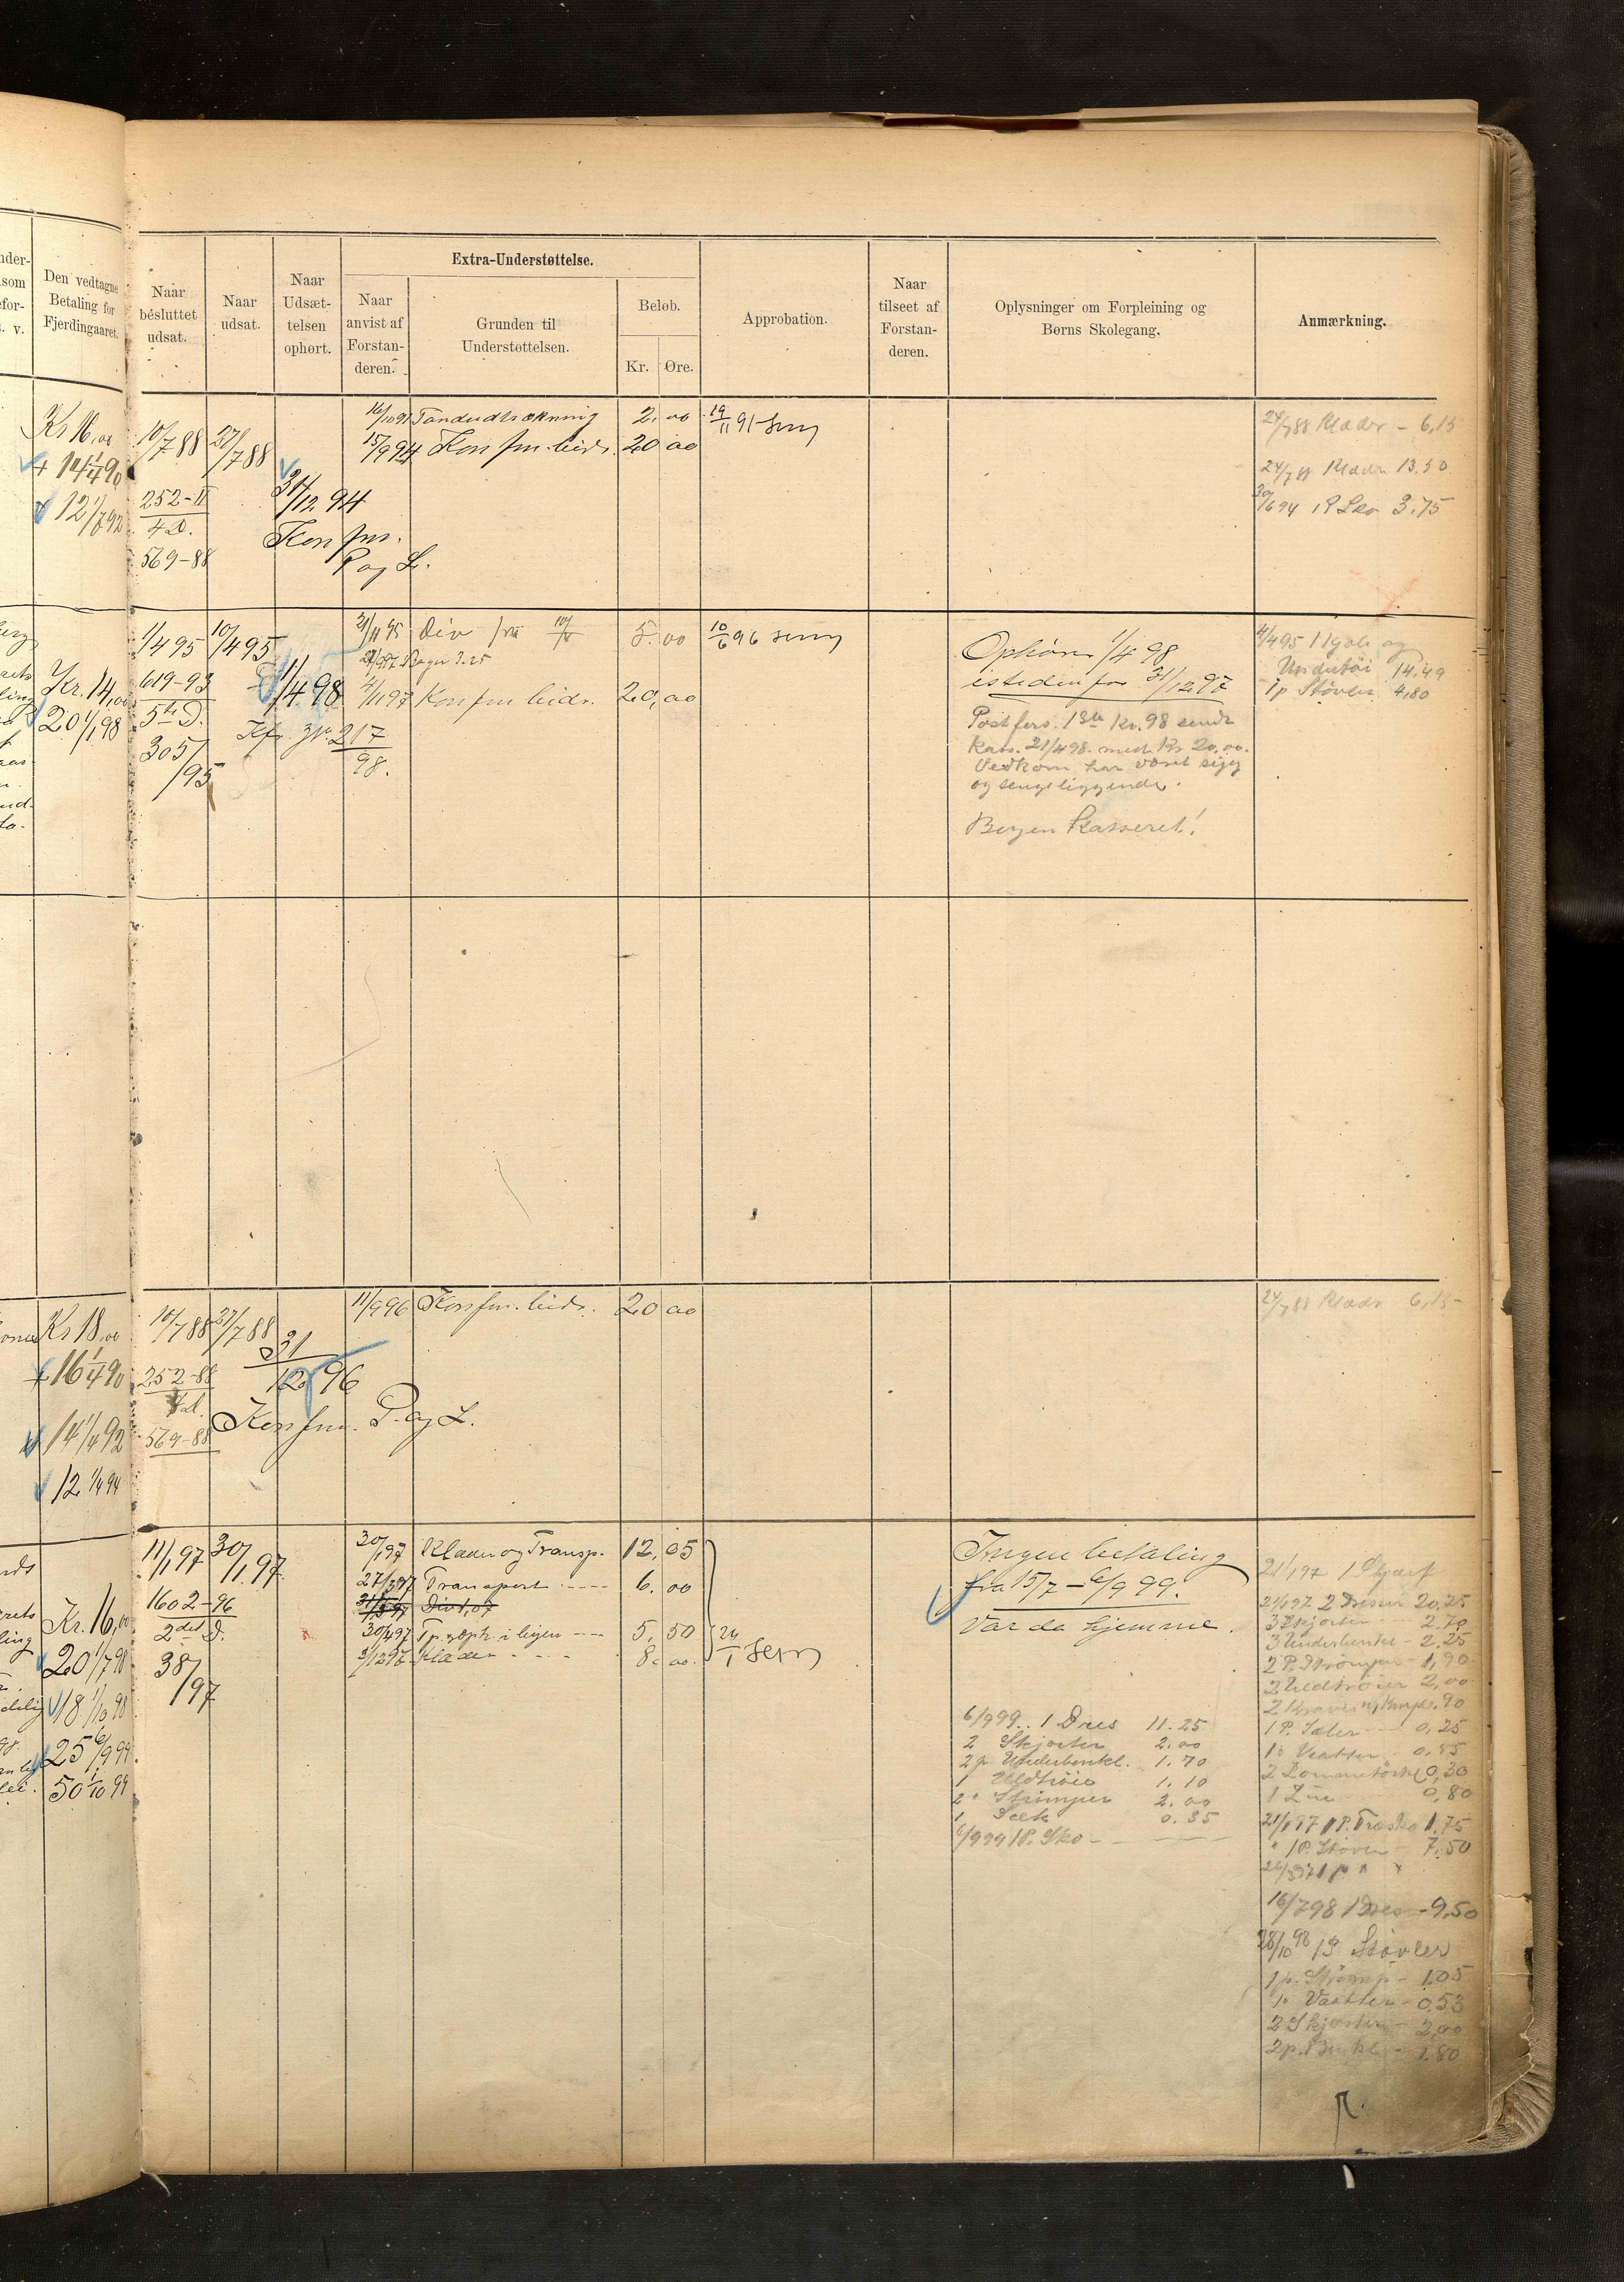 Den vedtagne
Betaling for
Fjerdingaaret.
Naar
besluttet
udsat.
Naar
udsat.
Naar
Udsæt-
telsen
ophørt.
Extra-Understøttelse.
Naar
anvist af
Forstan-
deren.
Grunden til
Understøttelsen.
Beløb.
Kr. Øre.
Approbation.
Naar
tilseet af
Forstan-
deren.
Oplysninger om Forpleining og
Børns Skolegang.
Anmærkning.
Kr 16,00
+ 14 1/4 90
12 1/7 92
10/7 88
252-II
4 D.
569-88
27/7 88
31/12 94
Konfm.
P og L.
16/10 91 Tandudtrækning 2,00 19/11 91
15/9 94 Konfm. bidr. 20 00
24/7 88 Klæder - 6,15
24/7 88 Klæder 13.50
30/6 94 1 P Sko 3.75
Kr. 14,00
20 1/1 98
1/4 95
619-93
5te D.
305/95
10/4 95
1/4 98
Kfr. Jr. 217
98.
21/11 95 Div fra 5.00 10/6 96
Bøger 3.25
4/11 97 Konfm bidr. 20,00
Ophører 1/4 98
istedenfor 31/12 97
Postfors. 1ste Kv. 98 sendt
Kass. 21/4 98 med Kr 20.00.
Vedkom har været syg
og sengeliggende.
Bogen Kasseret!
4/4 95 1 Kjole og
Undertøi 14,49
1 p Støvler 4,80
Kr 18,00
+ 16 1/4 90
14 1/4 92
12 1/4 94
10/7 88
252-88
569-88
27/7 88
31
12 96
Konfm. P. og L.
11/9 96 Konfm. bidr. 20 00
24/7 88 Klæder 6,15
Kr. 16,00
20 1/7 98
18 1/10 98
25 6/9 99
50 1/10 99
11/1 97
1602-96
2det D.
38/97
30/1 97
30/1 97 Klæder og Transp. 12,05
27/3 97 Transport 6.00
Div 1,07
30/4 97 5,50
3/12 97 Klæder 8.00
24/1
Ingen betaling
fra 15/7 - 6/9 99.
Var da hjemme.
6/9 99. 1 Dres 11.25
2 Skjorter 2.00
2 p. Underbenkl. 1.70
1 Uldtrøie 1.10
2 " Strømper 2.00
1 Sæk 0.35
6/9 99 1 P. Sko
21/1 97 1 Skjærf
21/1 97 2 Dresser 20,25
3 Skjorter 2.70
3 Underbenkl - 2.25
2 P. Strømper - 1,90
2 Uldtrøier 2,00
1 P. Seler 0,25
1 " Vaatter 0.85
2 Lommetørkl 0,30
1 Lue 0,80
21/1 97 1 P. Træsko 1.75
" 1 P. Støvler 7.50
16/7 98 1 Dres - 9,50
28/10 98 1 P Støvler
1 p. Strømp - 1.05
1 " Vaatter - 0.53
2 Skjorter - 2,00
2 p. Benkl - 1.80